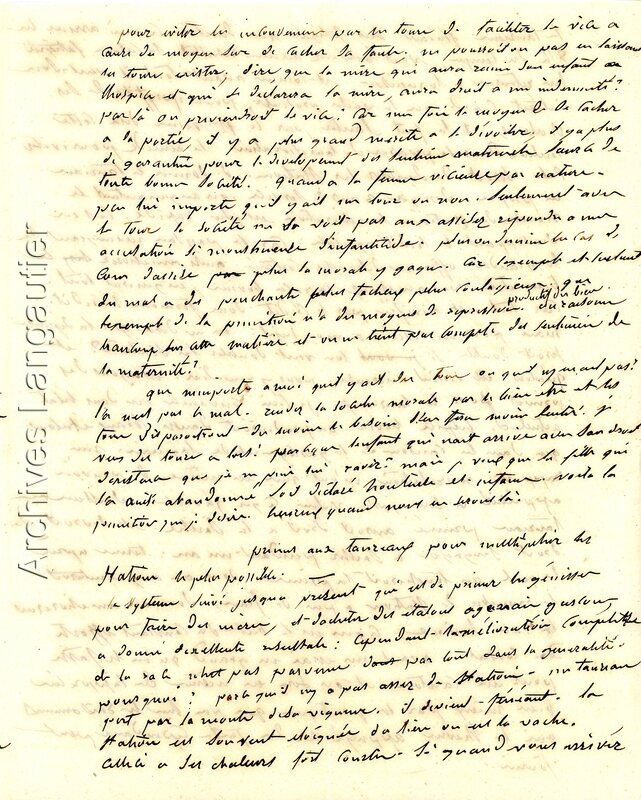 pour eviter les inconvenients par un tour de faciliter le vice a
cause du moyen sur de cacher sa faute. ne pourroit on pas en laissant
les tours exister, dire que la mère qui aura remis son enfant a
lhospice et qui se declarera la mère, aura droit a une indemnité?
par la on previendroit le vice: Car une fois le moyen de le cacher
a la portée, il y a plus grand mérite a le dévoiler. il y a plus
de garantie pour le developement des sentimens maternels source de
toute bonne société. quand a la femme vicieuse par nature
peu lui importe qu'il y ait un tour ou non. seulement avec
le tour la société ne se voit pas aux assises repondre a une
accusation si monstrueuse d'infanticide. plus on diminue les cas de
Cour d'assise plus la morale y gagne. Car lexemple et
du mal a des penchants plus facheux plus contagieux que
lexemple de la punition n'a des moyens de repression productif du bien. on raisonne
beaucoup sur cette matière et on ne tient pas compte du sentiment de
la maternité?
que m'importe a moi qu'il y ait des tours ou qu'il n'y en ait pas?
la n'est pas le mal. rendez la société morale par le bien etre et les
tours disparaitront du moins le besoin s'en fera moins sentir. je
veux des tours a lors! parceque lenfant qui nait arrive avec son droit
d'existence que je ne puis lui ravir? mais je veux que la fille qui
la ainsi abandonné soit déclaré honteuse et infame voila la
punition que je desire. heureux quand nous en serons là.
primes aux taureaux pour multiplier les
Stations le plus possible.
le systeme suivi jusqua présent qui est de primer les génisses
pour faire des meres, et d'acheter des etalons agenais gascons
a donné d'excellents resultats: Cependant l'amélioration complette
de la race n'est pas parvenue par tout dans la generalité.
pourquoi? parcequ'il n'y a pas assez de Stations. un taureau
perd par la monte de sa vigueur. il devient fénéant. la
Station est souvent eloignée du lieu ou est la vache.
celle ci a ses chaleurs fort courtes. si quand vous arrivez
Archives Langautier